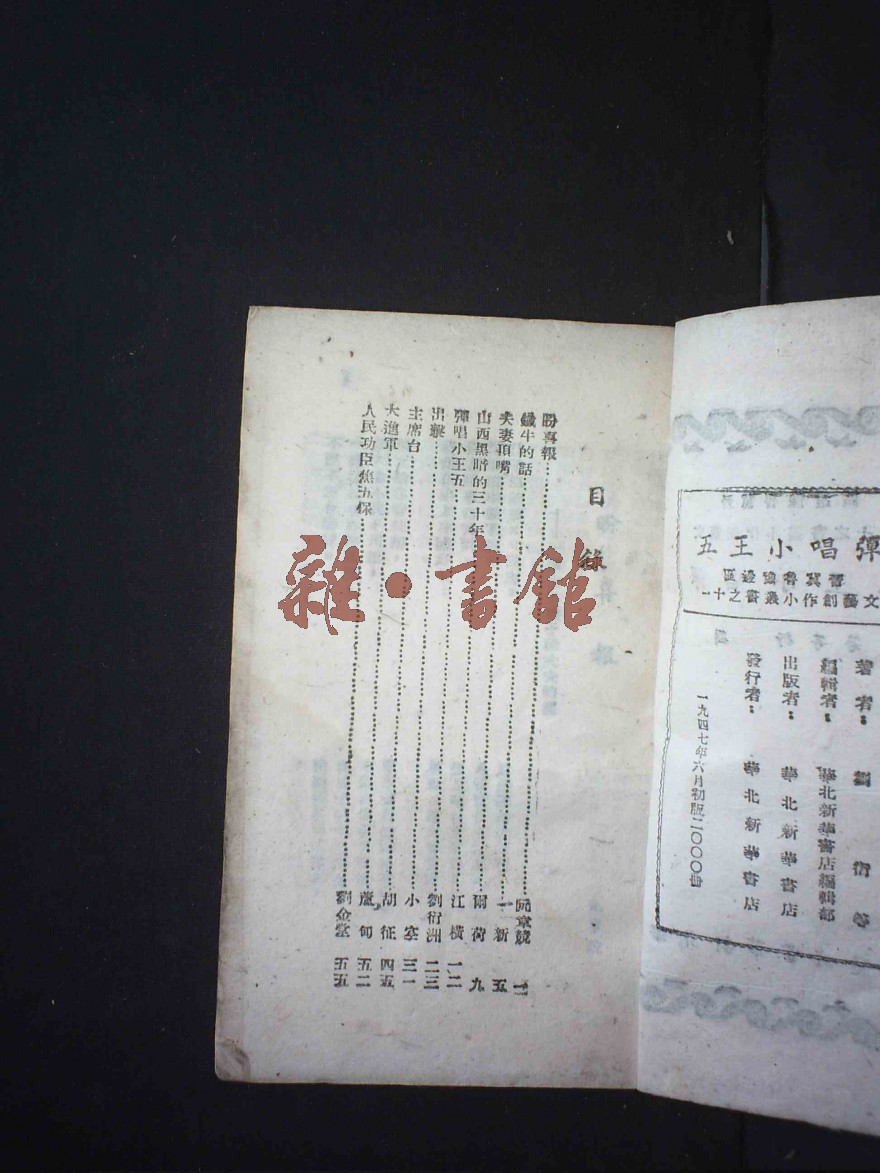 彈唱小王五
晉冀魯豫邊區
文藝創作小叢書之十一
著者： 劉衍等
編輯者： 華北新華書店編輯部
出版者： 華北新華書店
發行者： 華北新華書店
一九四七年六月初版二〇〇〇冊
目錄
盼喜報 阮章競
鐵牛的話 一新 五
夫妻頂嘴 爾荷 九
山西黑暗的三十年 江橫 一二
彈唱小王五 劉衍洲 二三
出擊 小寒 三一
主席台 胡征 四五
大進軍 蘆甸 五二
人民功臣焦五保 劉金堂 五五
雜·書館